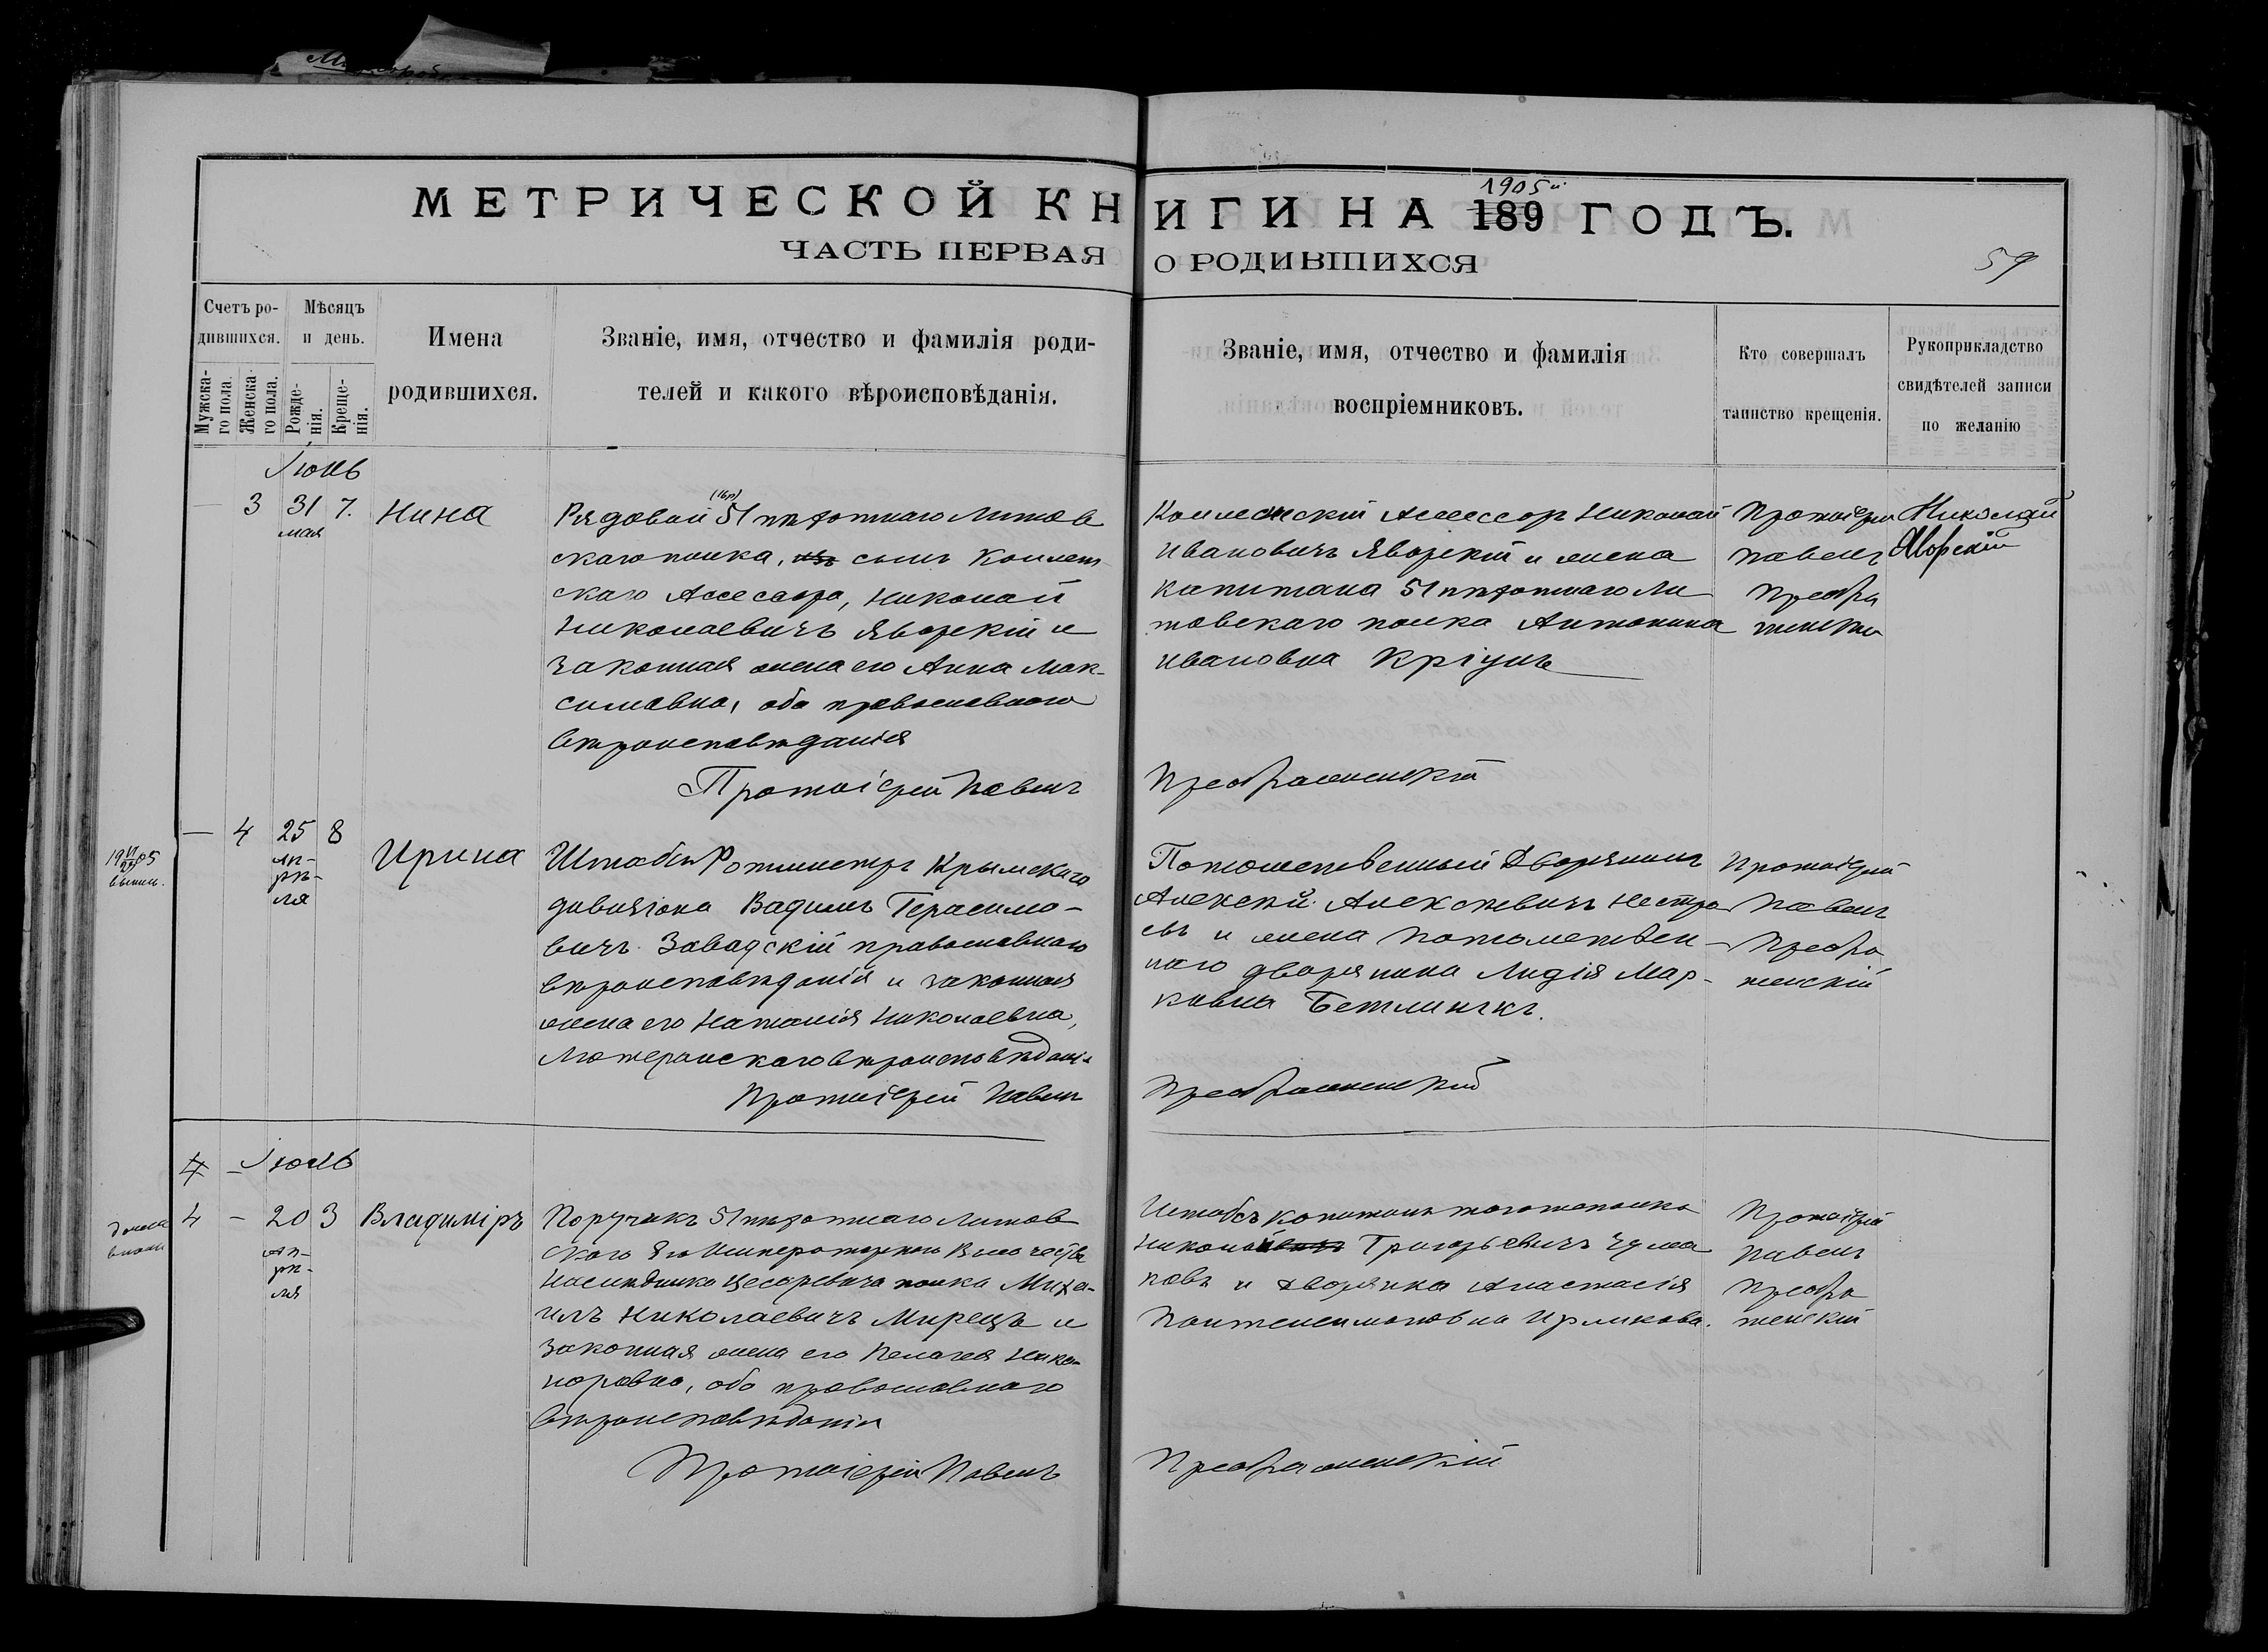 МЕТРИЧЕСКОЙ КНИГИ НА 189 ГОДЪ.
1905й
ЧАСТЬ ПЕРВАЯ О РОДИВШИХСЯ
59
Счетъ ро-
дившихся.
Мужска-
го пола.
Женска-
го пола.
Мѣсяцъ
и день.
Рожде-
нія.
Креще-
нія.
Имена
родившихся.
Званіе, имя, отчество и фамилія роди-
телей и какого вѣроисповѣданія.
Званіе, имя, отчество и фамилія
воспріемниковъ.
Кто совершалъ
таинство крещенія.
Рукоприкладство
свидѣтелей записи
по желанію
Іюнь
— 3 31 7.
мая
Нина
Рядовой 51 пѣхотнаго Литов
скаго полка, сынъ Коллеж
скаго Ассесора, Николай
Николаевичъ Яворскій и
законная жена его Анна Мак-
симовна, оба православнаго
вѣроисповѣданія
Протоіерей Павелъ
Коллежскій Ассессоръ Николай
Ивановичъ Яворскій и жена
Капитана 51 пѣхотнаго Ли
товскаго полка Антонина
Ивановна Кріунъ
Преображенскій
Протоіерей
Павелъ
Преобра
женскій
Николай
Яворскій
— 4 25 8
ап-
рѣ-
ля
Ирина
Штабсъ Ротмистръ Крымскаго
дивизіона Вадимъ Герасимо-
вичъ Завадскій православнаго
вѣроисповѣданія и законная
жена его Наталія Николаевна,
Лютеранскаго вѣроисповѣданія
Протоіерей Павелъ
Потомственный Дворянинъ
Алексѣй Алексѣевичъ Нестро
евъ и жена потомствен-
наго дворянина Лидія Мар-
ковна Бетлингкъ.
Преображенскій
Протоіерей
Павелъ
Преобра
женскій
4 - Іюль
4 - 20 3
ап-
рѣ-
ля
Владиміръ
Поручикъ 51 пѣхотнаго Литов
скаго Его Императорскаго Высочества
Наслѣдника Цесаревича полка Миха-
илъ Николаевичъ Мирецъ и
законная жена его Пелагея Ника-
норовна, оба православнаго
вѣроисповѣданія
Протоіерей Павелъ
Штабсъ капитанъ тогоже полка
Николай Григорьевичъ Чума
ковъ и дворянка Анастасія
Пантелеимоновна Ирликова.
Преображенскій
Протоіерей
Павелъ
Преобра
женскій